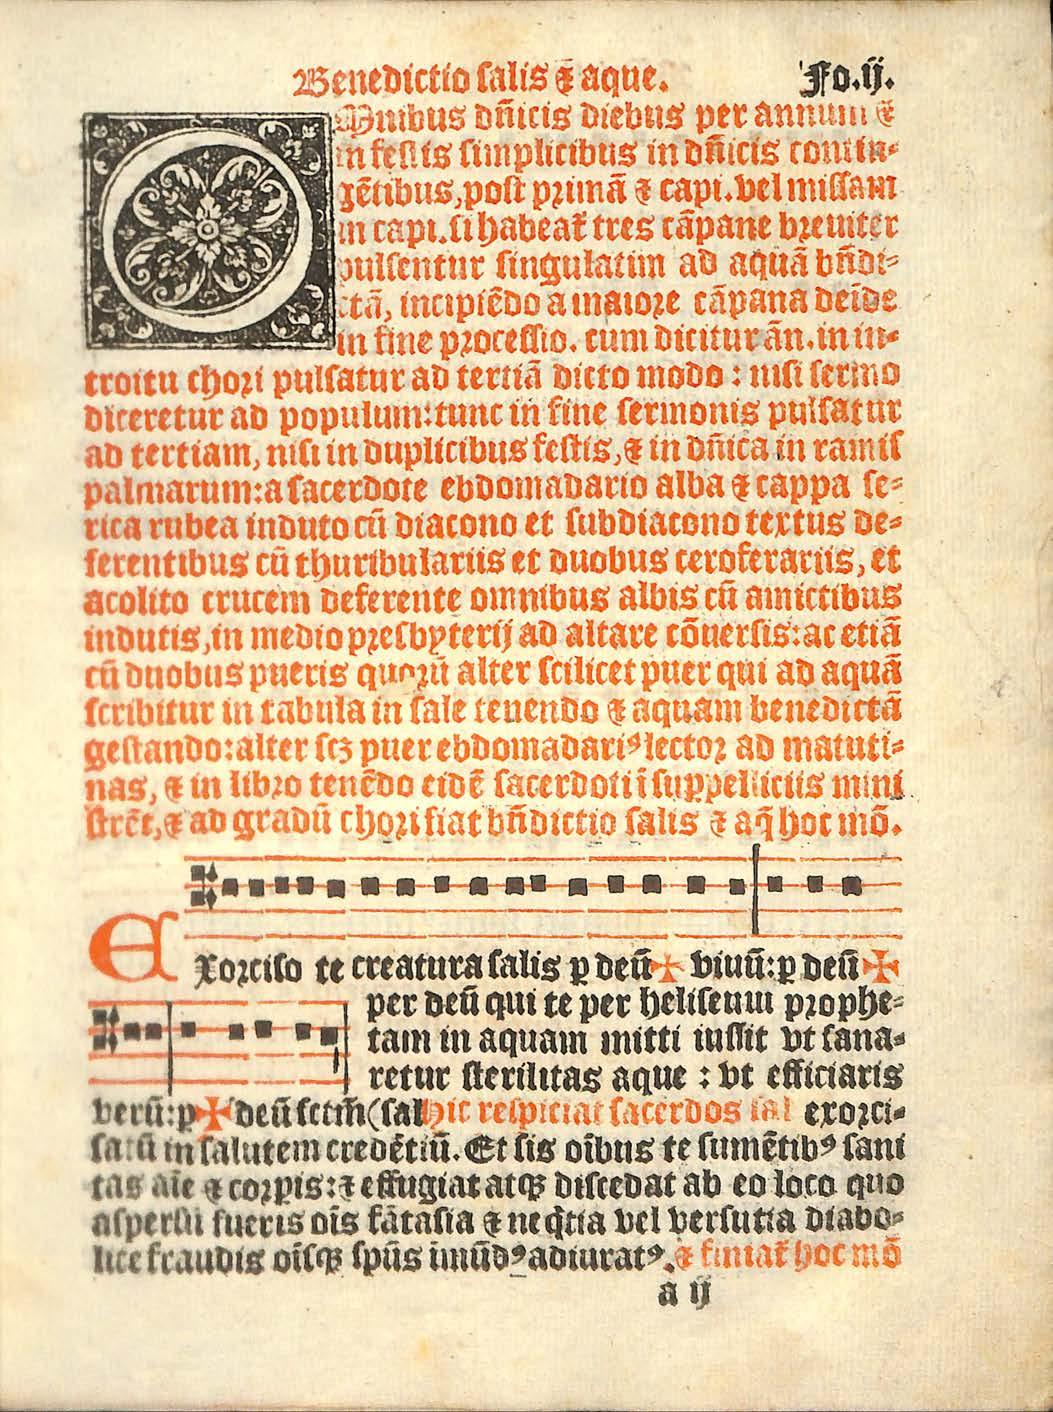 Benedictio salis ⁊ aque. Fo.ij.
OMnibus dñicis diebus per annum ⁊
in festis simplicibus in dñicis contin-
gētibus, post primā ⁊ capi. vel missam
in capi. si habeat̃ tres cāpane breuiter
pulsentur singulatim ad aquā bñdi-
ctā, incipiēdo a maiore cāpana deīde
in fine processio. cum dicitur añ. in in-
troitu chori pulsatur ad tertiā dicto modo : nisi sermo
diceretur ad populum: tunc in fine sermonis pulsatur
ad tertiam, nisi in duplicibus festis, ⁊ in dñica in ramis
palmarum: a sacerdote ebdomadario alba ⁊ cappa se-
rica rubea induto cū diacono et subdiacono textus de-
ferentibus cū thuribulariis et duobus ceroferariis, et
acolito crucem deferente omnibus albis cū amictibus
indutis, in medio presbyterij ad altare cōuersis: ac etiā
cū duobus pueris quorū alter scilicet puer qui ad aquā
scribitur in tabula in sale tenendo ⁊ aquam benedictā
gestando: alter scꝫ puer ebdomadariꝰ lector ad matuti-
nas, ⁊ in libro tenēdo eidē sacerdoti ī suppelliciis mini
strēt, ⁊ ad gradū chori fiat bñdictio salis ⁊ aq̄ hoc mō.
EXorciso te creatura salis p deū ✠ viuū: p deū ✠
verū: p ✠ deū sctm̄ (sal Hic respiciat sacerdos sal
per deū qui te per heliseum prophe-
tam in aquam mitti iussit vt sana-
retur sterilitas aque : vt efficiaris
exorci-
satū in salutem credētiū. Et sis oībus te sumētibꝰ sani
tas aīe ⁊ corpis: ⁊ effugiat atqꝫ discedat ab eo loco quo
aspersū fueris oīs fātasia ⁊ neq̄tia vel versutia diabo-
lice fraudis oīsqꝫ spūs īmūdꝰ adiuratꝰ. ⁊ finiat̃ hoc mō
a ij